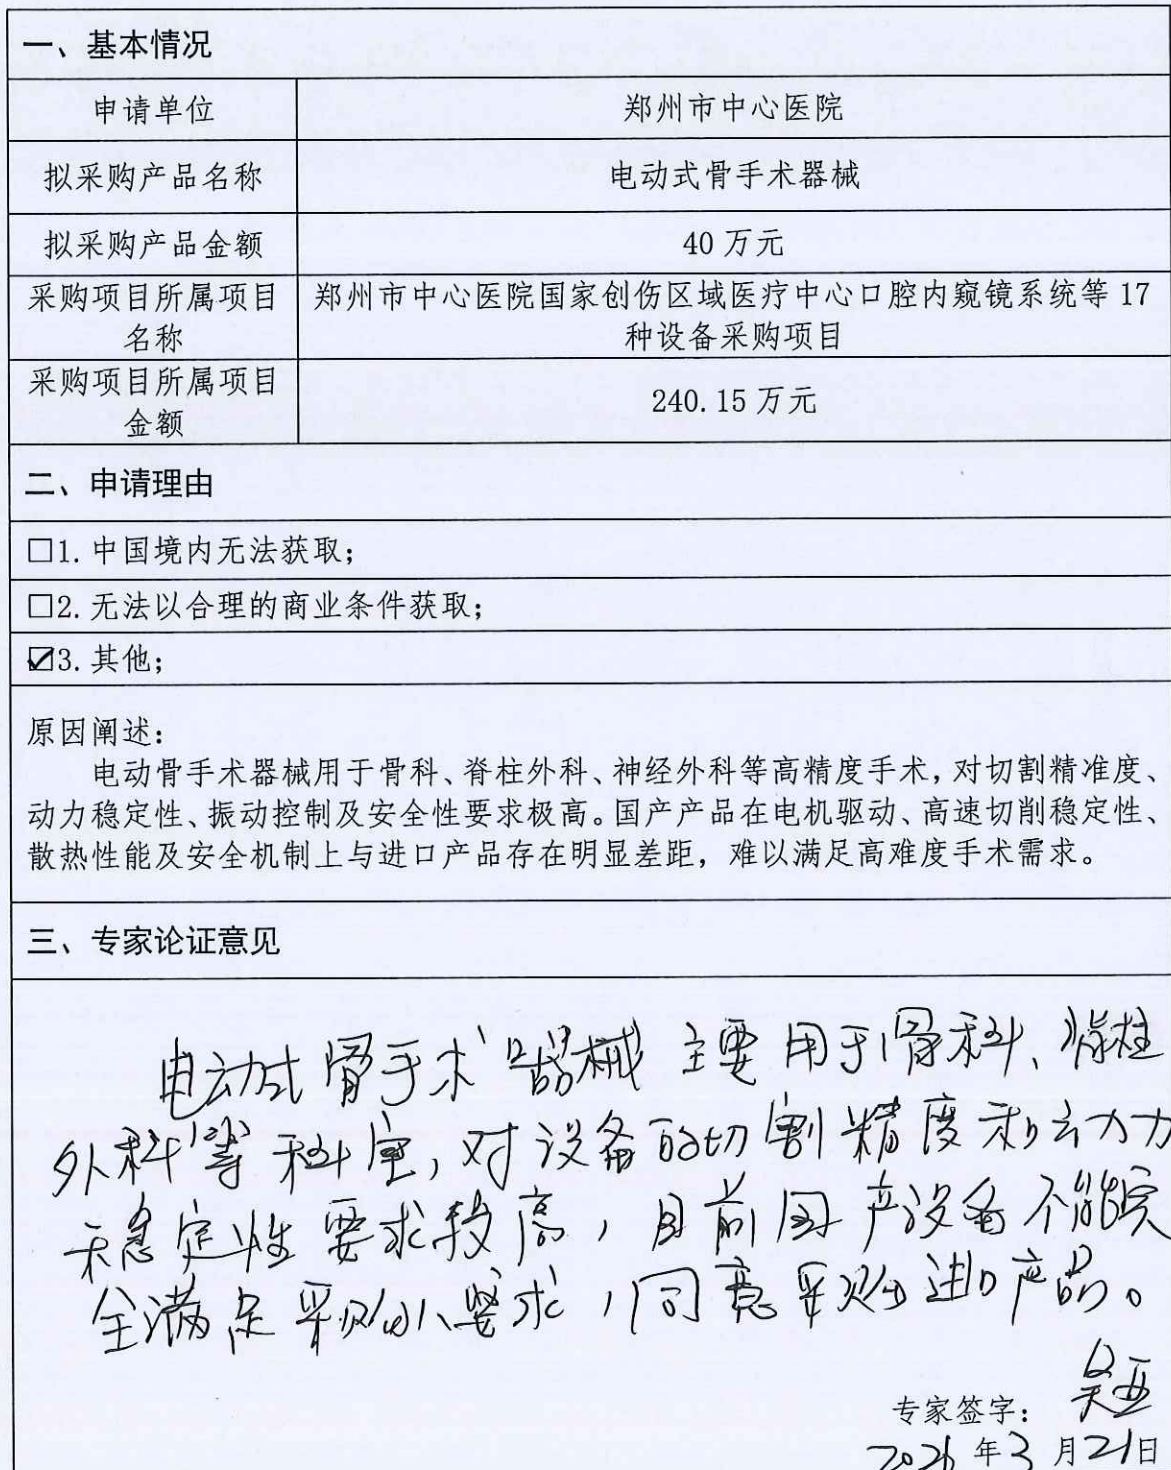 一、基本情况
申请单位 郑州市中心医院
拟采购产品名称 电动式骨手术器械
拟采购产品金额 40万元
采购项目所属项目 郑州市中心医院国家创伤区域医疗中心口腔内窥镜系统等17
名称 种设备采购项目
采购项目所属项目
金额 240.15万元
二、申请理由
□1.中国境内无法获取；
□2.无法以合理的商业条件获取；
☑3.其他；
原因阐述：
电动骨手术器械用于骨科、脊柱外科、神经外科等高精度手术，对切割精准度、
动力稳定性、振动控制及安全性要求极高。国产产品在电机驱动、高速切削稳定性、
散热性能及安全机制上与进口产品存在明显差距，难以满足高难度手术需求。
三、专家论证意见
电动式骨手术器械主要用于骨科、脊柱
外科等科室，对设备的切割精度和动力
稳定性要求较高，目前国产设备不能完
全满足采购要求，同意采购进口产品。
专家签字：吴亚
2026年3月21日